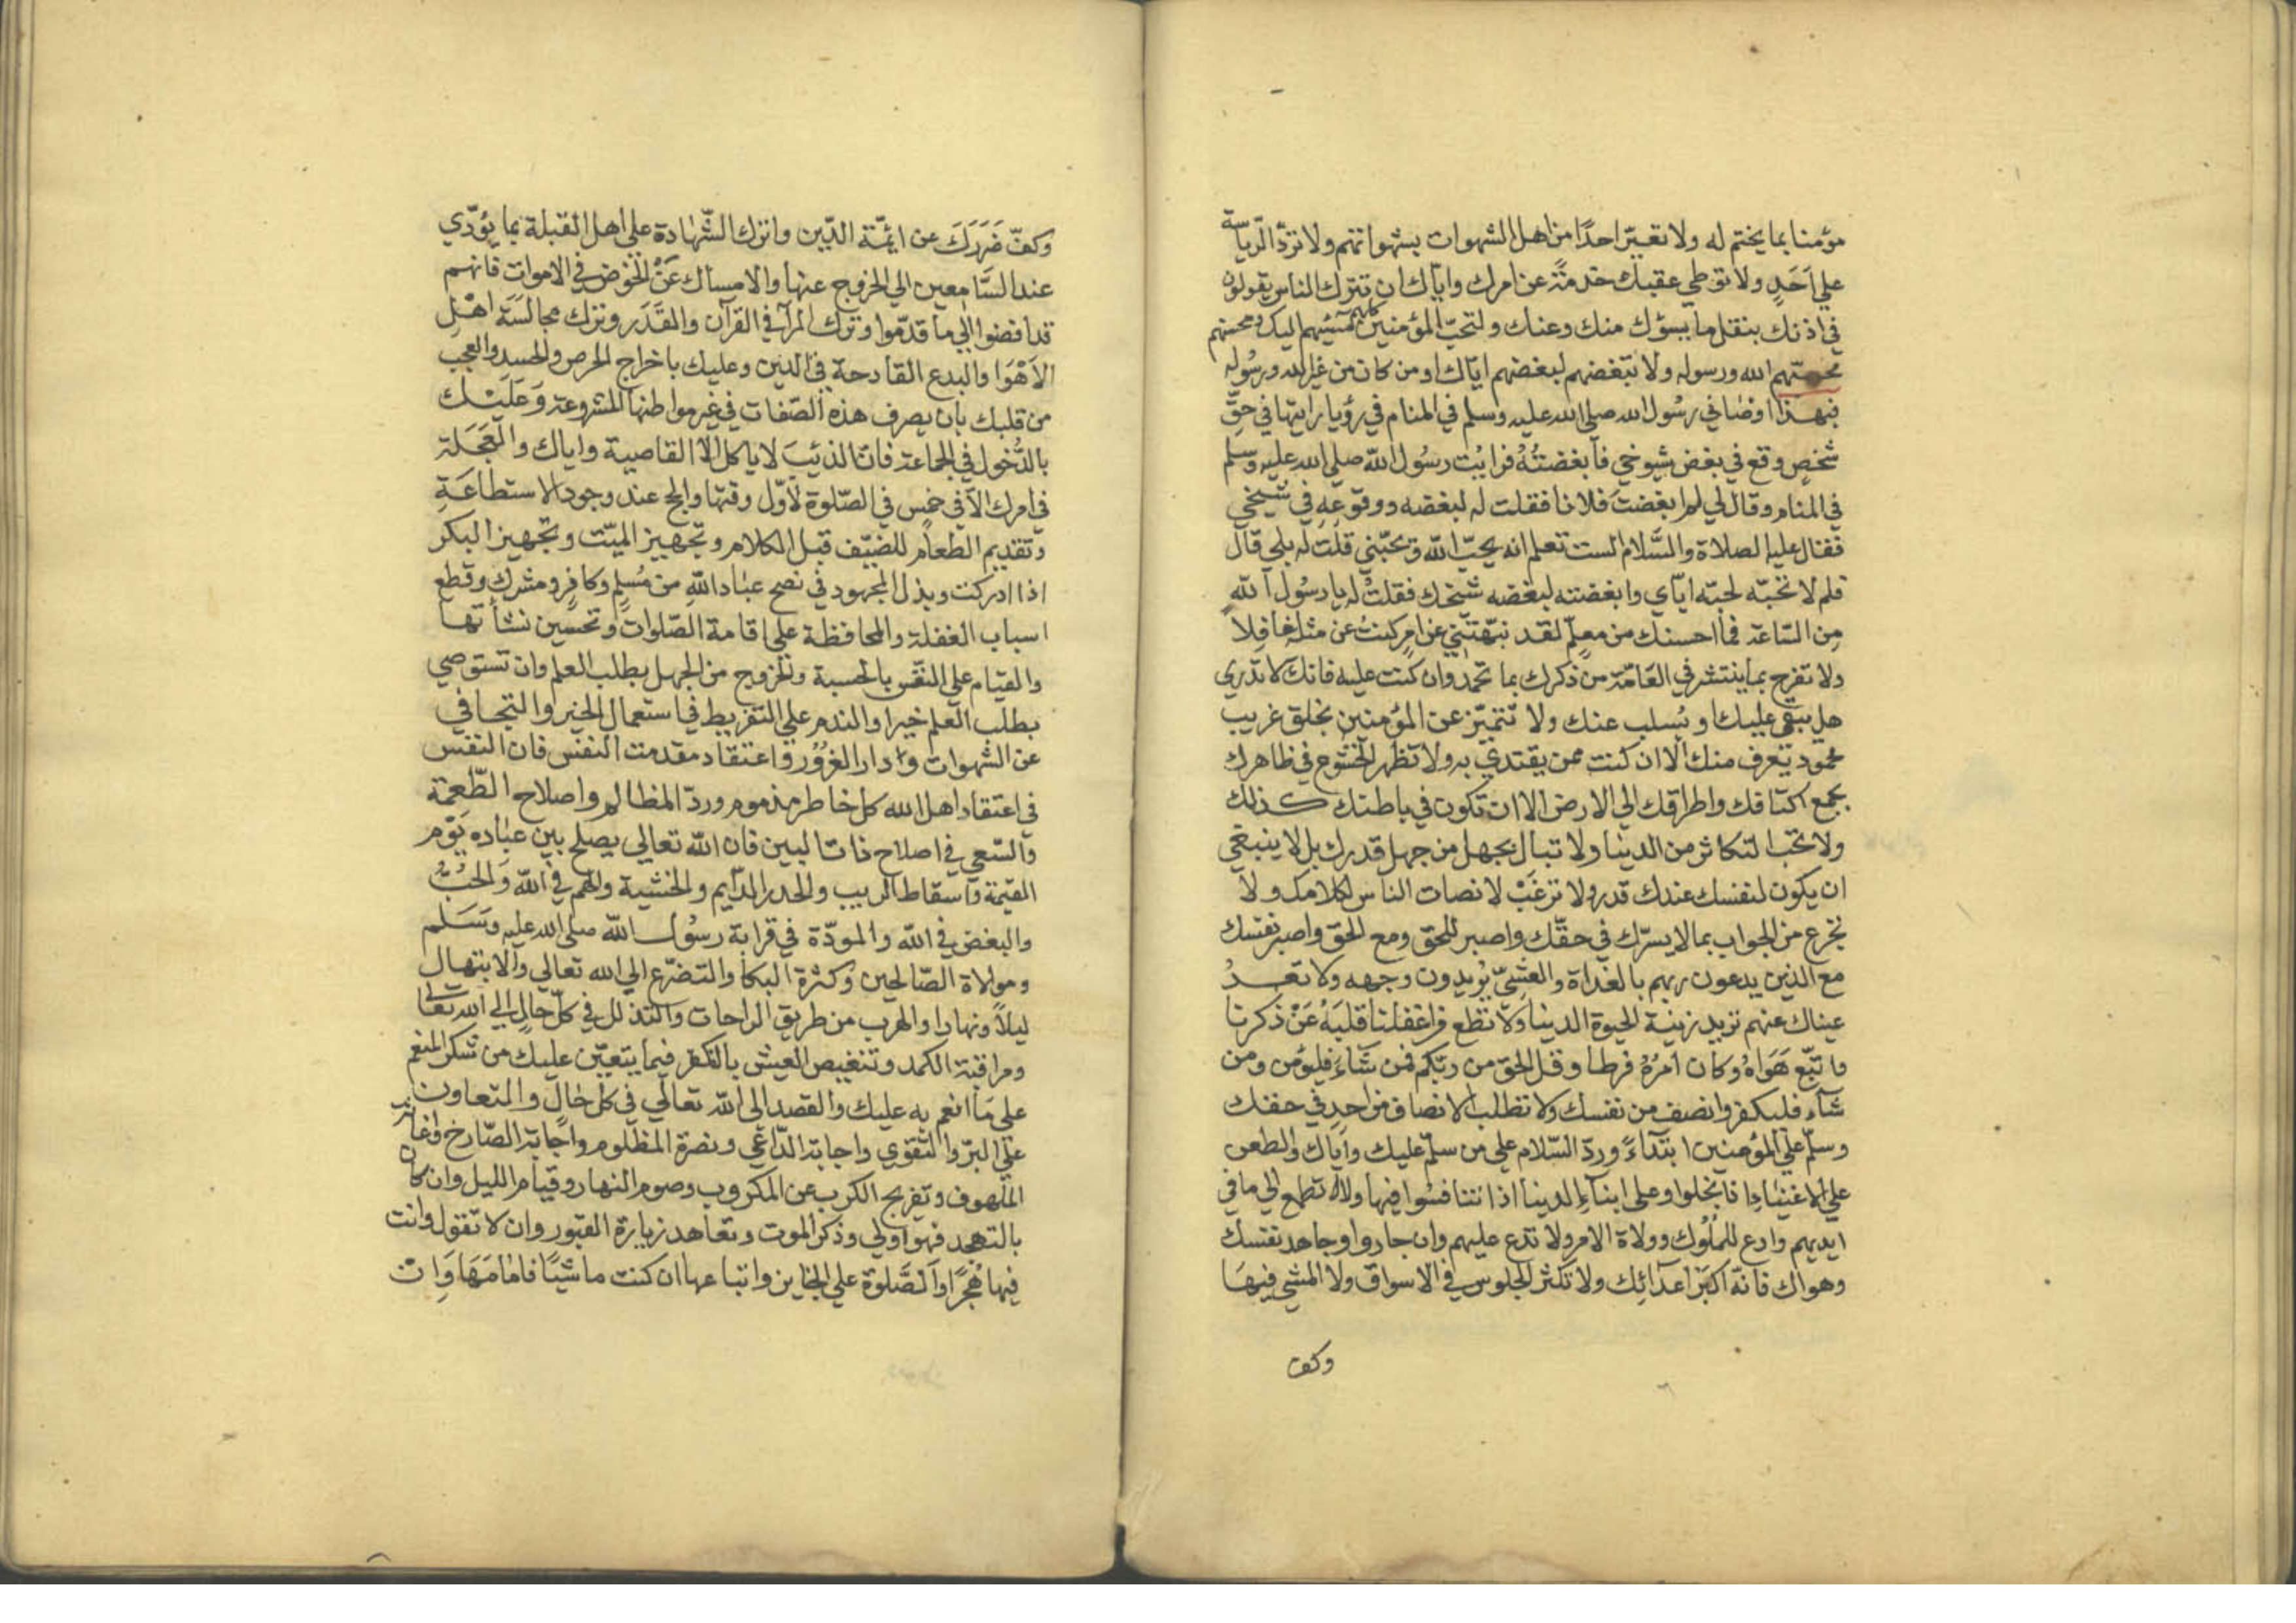 مؤمنا بما يختم له ولا تعيّر احدًا من اهل الشهوات بشهواتهم ولا تردّ الرياسة
علي اَحَدٍ ولا توطي عقبك خدمةً عن امرك واياك ان تترك الناس يقولون
في اذنك بنقل ما يسؤك منك وعنك ولتحبّ المؤمنين كلهم مسيئهم اليك ومحسنهم
محبتهم الله ورسوله ولا تبغضهم لبغضهم اياك او من كان من غير الله ورسوله
فبهذا اوصاني رسُول الله صلى الله عليه وسلم في المنام في رؤيا رايتها في حقّ
شخصٍ وقع في بغض شيوخي فابغضتُهُ فرايت رسُول الله صلى الله عليه وسلم
في المنام وقال لي لم ابغضت فلانا فقلت له لبغضه ووقوعهِ في شيخي
فقال عليه الصلاة والسَّلام الست تعلم انه يحبّ اللّه ويحبّني قلت له بلي قال
فلم لا تحبّه لحبّه ايّاي وابغضته لبغضه شيخك فقلت له يا رسُول اللّه
مِن السّاعة فما احسنك من معلّم لقد نبّهتَني عن امرٍ كنتُ عن مثله غافِلاً
ولا تفرح بما ينتشر في العَامّة من ذكرك بما تحمد وان كنت عليه فانك لا تدري
هل يبقي عليك او يُسلب عنك ولا تتميّز عن المؤمنين بخلق غريب
محمود يُعرف منك الا ان كنت ممن يقتدي به ولا تظهر الخشوع في ظاهرك
بجمع اكتافك واطراقك الي الارض الا ان تكون في باطنك كذلك
ولا تحبّ التكاثر من الدينا ولا تبال بجهل من جهل قدرك بل لا ينبغي
ان يكون لنفسك عندك قدر ولا ترغَبْ لانصات الناس لكلامك ولا
تجزع من الجواب بما لا يسرّك في حقّك واصبر للحقّ ومع الحقّ واصبر نفسك
مع الذين يدعون ربهم بالغداة والعشيّ يُريدون وجهه ولا تعدُ
عيناك عنهم تريد زينة الحيوة الدينا ولا تطع من اغفلنا قلبَهُ عَنْ ذكرنا
واتبّع هَوَاهُ وكان امرُهُ فرطا وقل الحقّ من ربّكم فمن شآءَ فليؤمن ومن
شآء فليكفر وانصف من نفسك ولا تطلب الانصاف من احدٍ في حقك
وسلّم علي المؤمنين ابتدآءً وردّ السّلام علي من سلّم عليك واياك والطعن
علي الاغنياءِ اذا بخلوا وعلى ابنآءِ الدينا اذا تنافسُوا فيها ولا تطمع الي ما في
ايديهم وادع للمُلُوك وولاة الامر ولا تدع عليهم وان جاروا وجاهد نفسك
وهواك فانّه اكبَرُ اعدآئِك ولا تكثر الجلوس في الاسواق ولا المشي فيهَا
وكف
وكفّ ضَرَرَكَ عن ايمّة الدّين واترك الشّهادة علي اهل القبلة بما يُؤدّي
عند السَّامعين الي الخروج عنها والامساك عَنْ الخوض في الاموات فانهم
قد افضوا الي ما قدّموا وترك المرآ في القرآن والقَدَر وترك مجالسَة اهْل
الاَهْوَا والبدع القادحة في الدين وعليك باخراج الحرص والحسد والعجب
من قلبك بان يصرف هذه الصّفات في غير مواطنها المشروعة وَعَلَيْك
بالدُّخول في الجماعة فانّ الذئبَ لا ياكل الاّ القاصية واياك والعَجَلة
في امرك الاّ في خمس في الصّلوة لاَوّل وقتها والحج عند وجود الاستطاعَةِ
وتقديم الطعام للضيّف قبل الكلام وتجهيز الميّت وتجهيز البكر
اذا ادركت وبذل المجهود في نصح عبَاد اللّهِ من مُسلِم وكافرٍ ومشرك وقطع
اسباب الغفلة والمحافظة علي اقامة الصّلوات وتحسين نشأتها
والقيام علي النفس بالحسبة والخروج من الجهل بطلب العلم وان تستوصي
بطلب العلم خيرا والندم علي التفريط في استعمال الخير والتجافي
عن الشهوات ودار الغرُوْر واعتقاد مقدمت النفس فان النفس
في اعتقاد اهل الله كل خاطر مذموم وردّ المظالم واصلاح الطّعمة
والسّعي في اصلاح ذات البين فان اللّه تعالى يصلح بين عبَاده يَوْم
القيمة واسقاط الريب والحذر الدّايم والخشية والهم في اللّه وَالحُبُّ
والبغض في اللّه والمودّة في قرابة رسُول اللّه صلى الله عليه وَسَلم
ومولاة الصّالحين وكثرة البكا والتضرّع الي الله تعالي والابتهال
ليلاً ونهارا والهرب من طريق الراحات والتذلل في كلّ حالٍ الي الله تعالى
ومراقبة الكمد وتنغيص العيش بالفكر فيما يتعيّن عليك من شكر المنعم
على مَا انعم به عليك والقصد الى اللّه تعالي في كل حَالٍ والتعاون
علي البرّ والتقوي واجابة الدّاعي ونصرة المظلوم واجابة الصّارخ واغاثة
الملهوف وتفريج الكرب عن المكروب وصوم النهار وقيام الليل وان كان
بالتهجد فهو اولي وذكر الموت وتعاهد زيارة القبور وان لا تقول وانت
فيها هُجرًا والصَّلوة علي الجنايز واتباعها ان كنت ماشيًا فامَامَهَا وَان